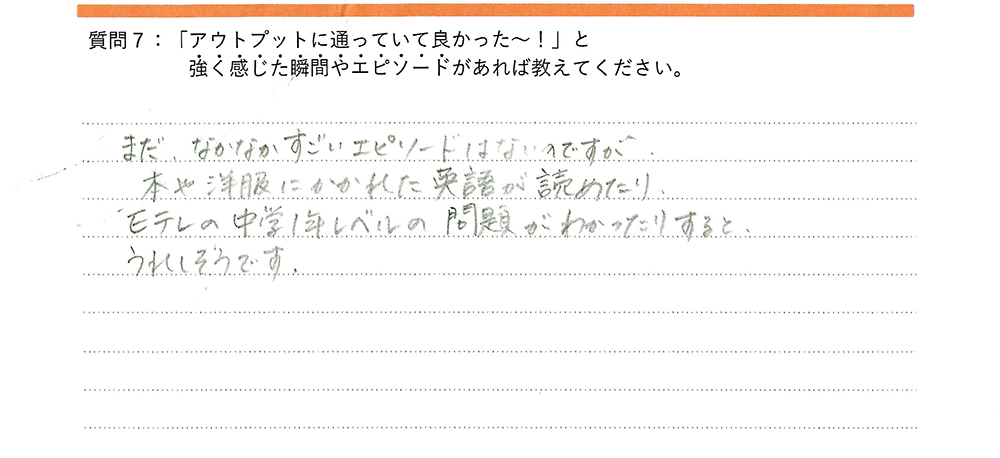 質問７：「アウトプットに通っていて良かった～！」と
強く感じた瞬間やエピソードがあれば教えてください。
まだ、なかなかすごいエピソードはないのですが、
本や洋服にかかれた英語が読めたり、
モテレの中学1年レベルの問題がわかったりすると、
うれしそうです。